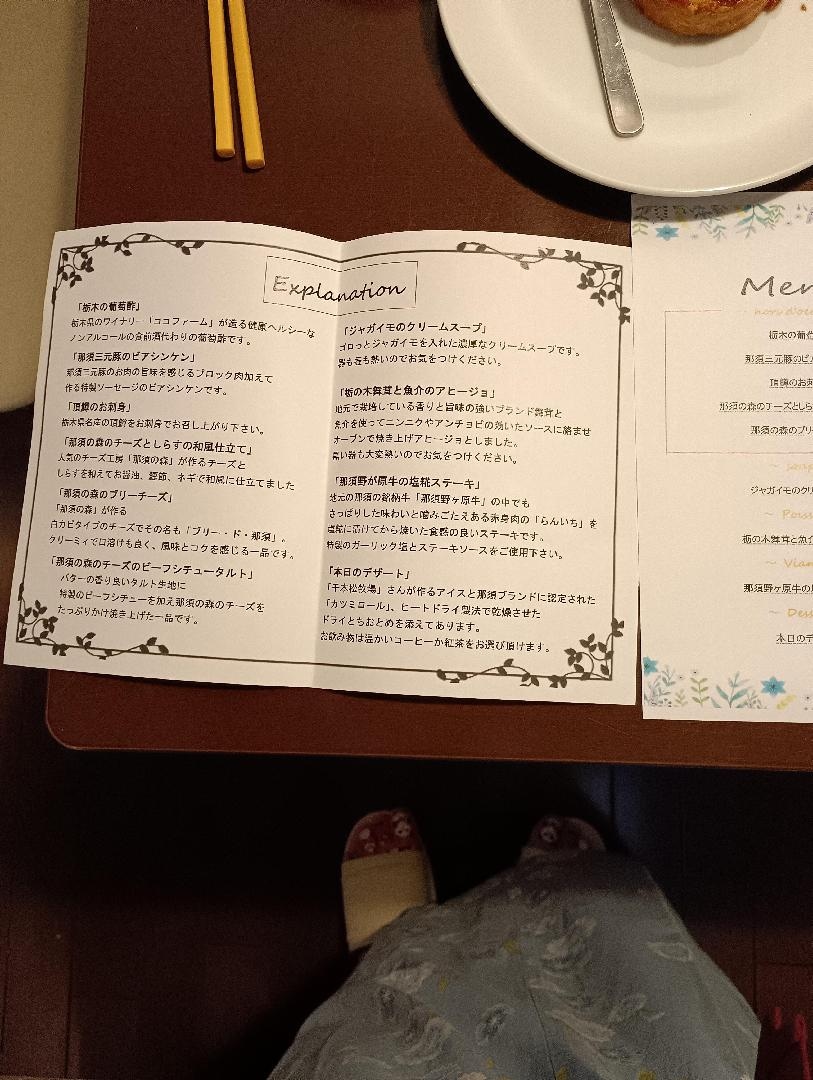 Explanation
「栃木の葡萄酢」
栃木県のワイナリー「ココファーム」が造る健康ヘルシーな
ノンアルコールの食前酒代わりの葡萄酢です。
「那須三元豚のビアシンケン」
那須三元豚のお肉の旨味を感じるブロック肉加えて
作る特製ソーセージのビアシンケンです。
「頂鱒のお刺身」
栃木県名産の頂鱒をお刺身でお召し上がり下さい。
「那須の森のチーズとしらすの和風仕立て」
人気のチーズ工房「那須の森」が作るチーズと
しらすを和えてお醤油、鰹節、ネギで和風に仕立てました
「那須の森のブリーチーズ」
「那須の森」が作る
白カビタイプのチーズでその名も「ブリー・ド・那須」。
クリーミィで口溶けも良く、風味とコクを感じる一品です。
「那須の森のチーズのビーフシチュータルト」
バターの香り良いタルト生地に
特製のビーフシチューを加え那須の森のチーズを
たっぷりかけ焼き上げた一品です。
「ジャガイモのクリームスープ」
ゴロっとジャガイモを入れた濃厚なクリームスープです。
器も匙も熱いのでお気をつけください。
「栃の木舞茸と魚介のアヒージョ」
地元で栽培している香りと旨味の強いブランド舞茸と
魚介を使ってニンニクやアンチョビの効いたソースに絡ませ
オーブンで焼き上げアヒージョとしました。
黒い器も大変熱いのでお気をつけください。
「那須野が原牛の塩糀ステーキ」
地元の那須の銘柄牛「那須野ヶ原牛」の中でも
さっぱりした味わいと噛みごたえある赤身肉の「らんいち」を
塩糀に漬けてから焼いた食感の良いステーキです。
特製のガーリック塩とステーキソースをご使用下さい。
「本日のデザート」
「千本松牧場」さんが作るアイスと那須ブランドに認定された
「カツミロール」、ヒートドライ製法で乾燥させた
ドライともおとめを添えてあります。
お飲み物は温かいコーヒーか紅茶をお選び頂けます。
Men
～ hors d'oeu
栃木の葡萄
那須三元豚のビア
頂鱒のお刺
那須の森のチーズとしら
那須の森のブリー
～ soup
ジャガイモのクリ
～ Poiss
栃の木舞茸と魚介
～ Vian
那須野ヶ原牛の
～ Dess
本日のデ